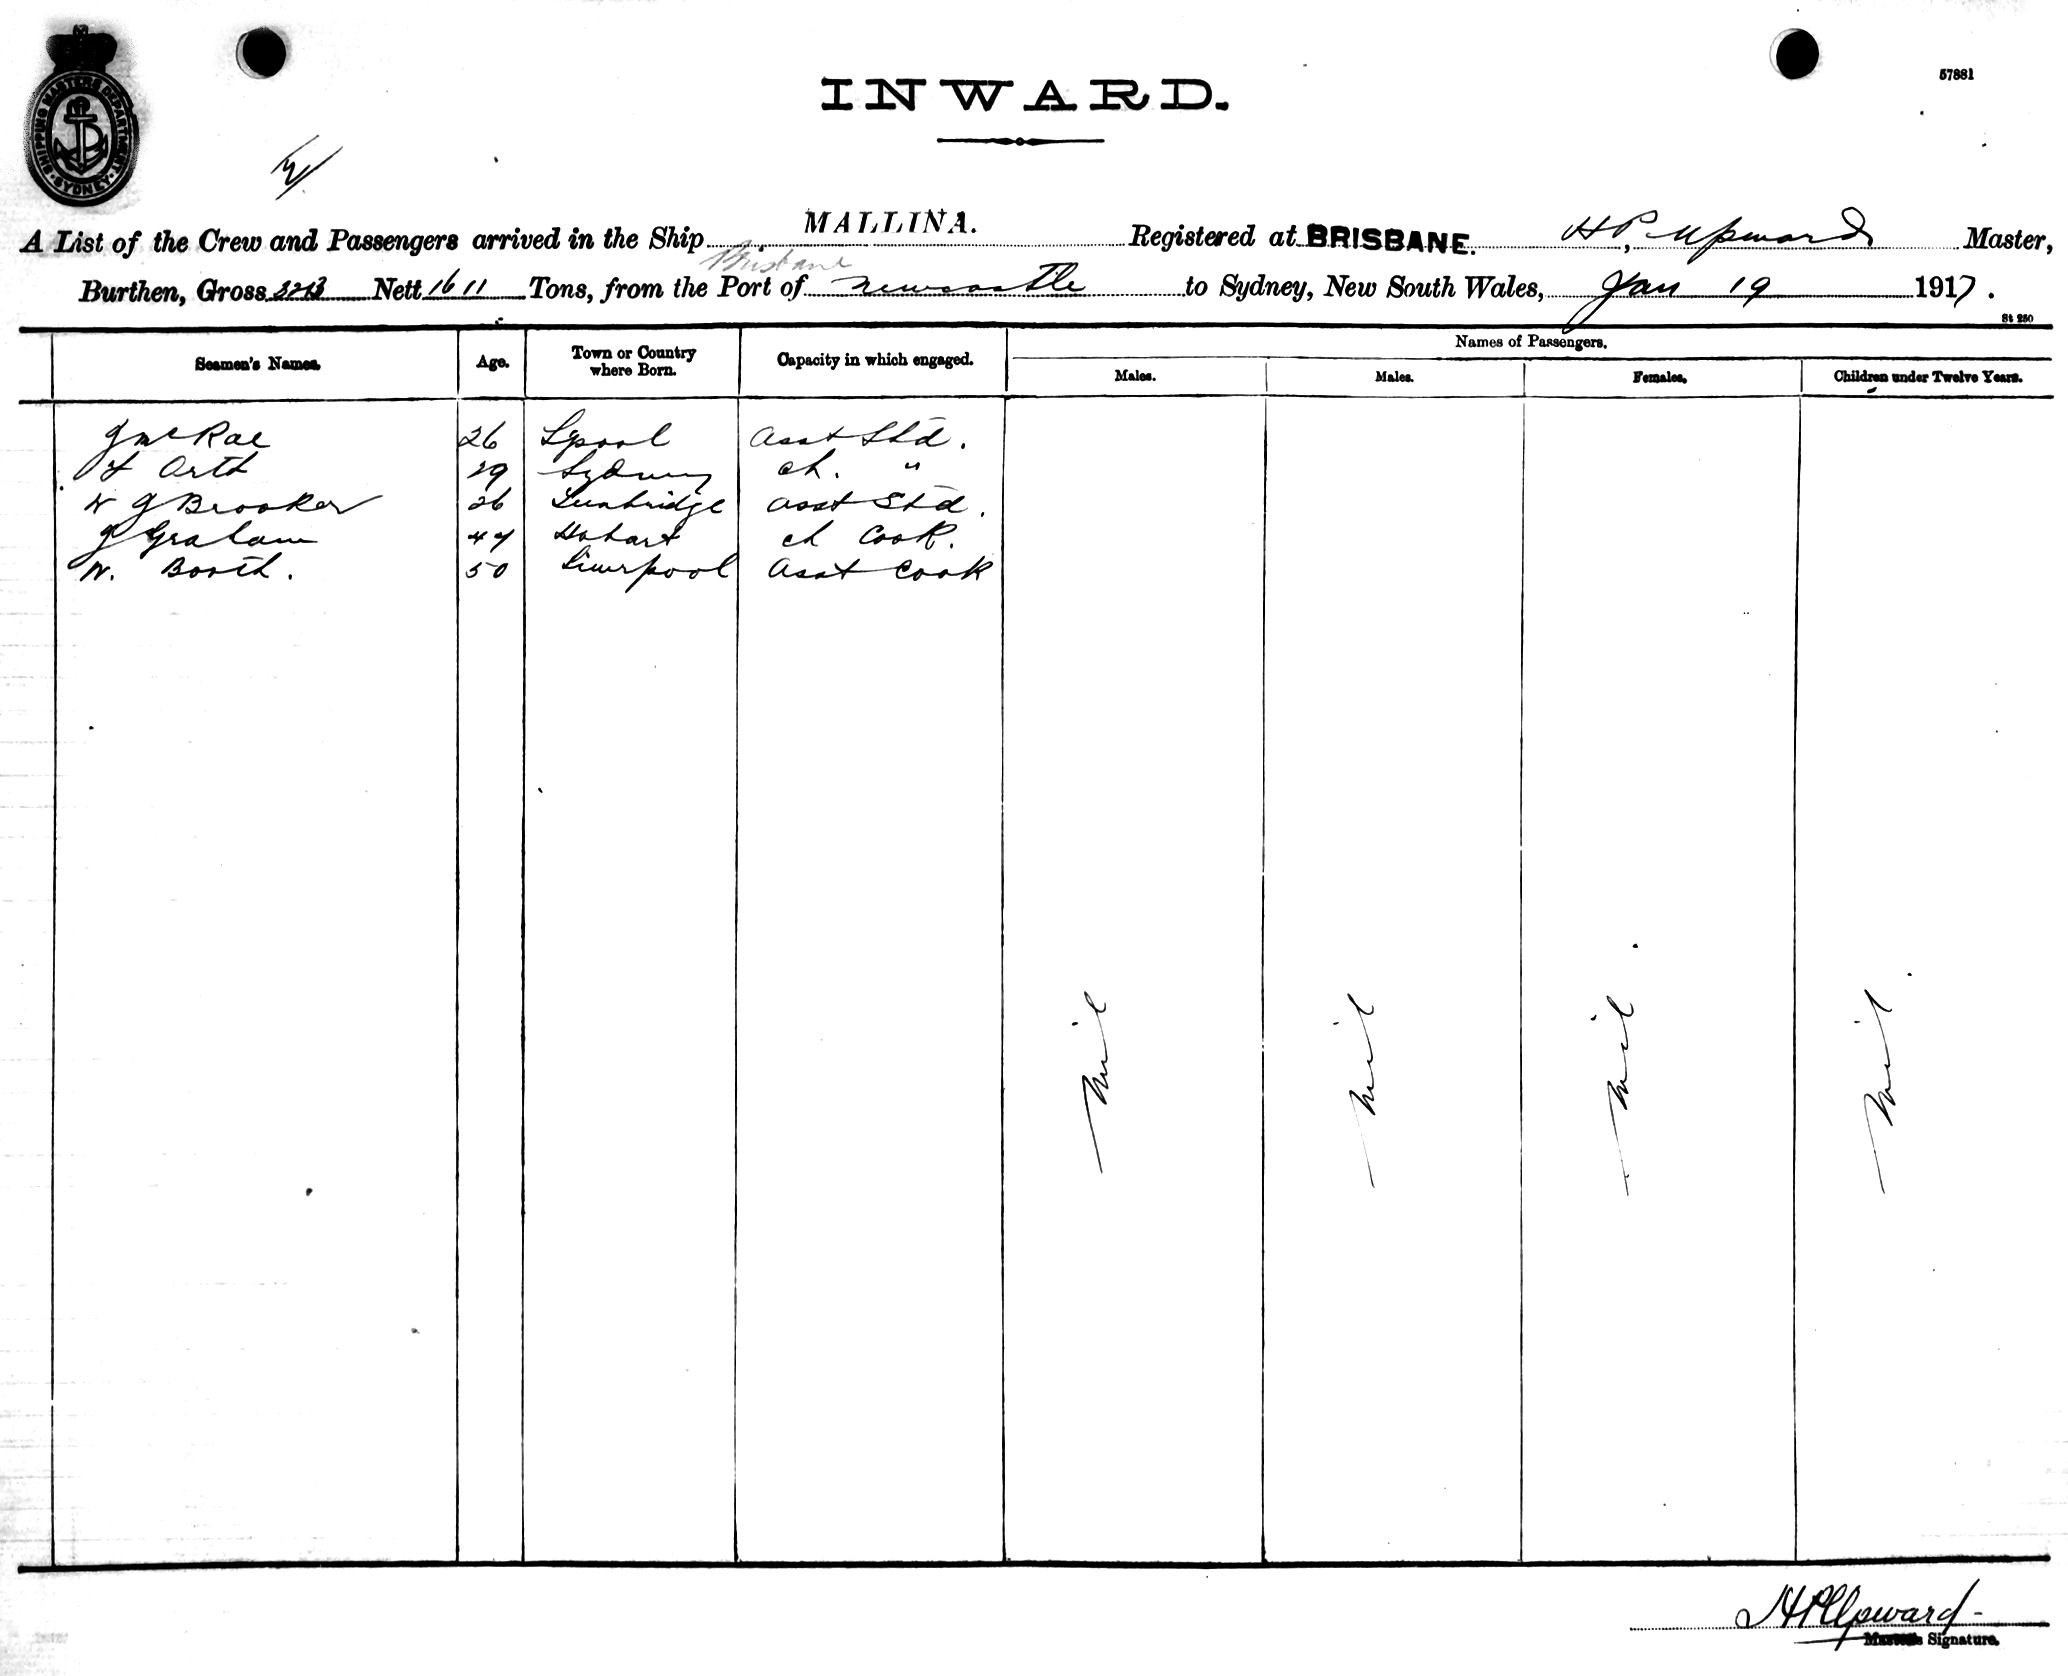 SHIPPING MASTERS DEPARTMENT
SYDNEY
INWARD.
57881
A List of the Crew and Passengers arrived in the Ship MALLINA. Registered at BRISBANE. H P. Upward Master,
Brisbane
Burthen, Gross 3213 Nett 1611 Tons, from the Port of Newcastle to Sydney, New South Wales, Jan 19 1917.
St 230
Seamen's Names. Age. Town or Country where Born. Capacity in which engaged. Names of Passengers.
Males. Males. Females. Children under Twelve Years.
J McRae 26 L'pool Asst Std.
Orth 29 Sydney Ch. "
W J Brooker 26 Tunbridge Asst Std.
J Graham 47 Hobart Ch Cook.
W. Booth. 50 Liverpool Asst Cook
Nil Nil Nil Nil
H P Upward
Master's Signature.